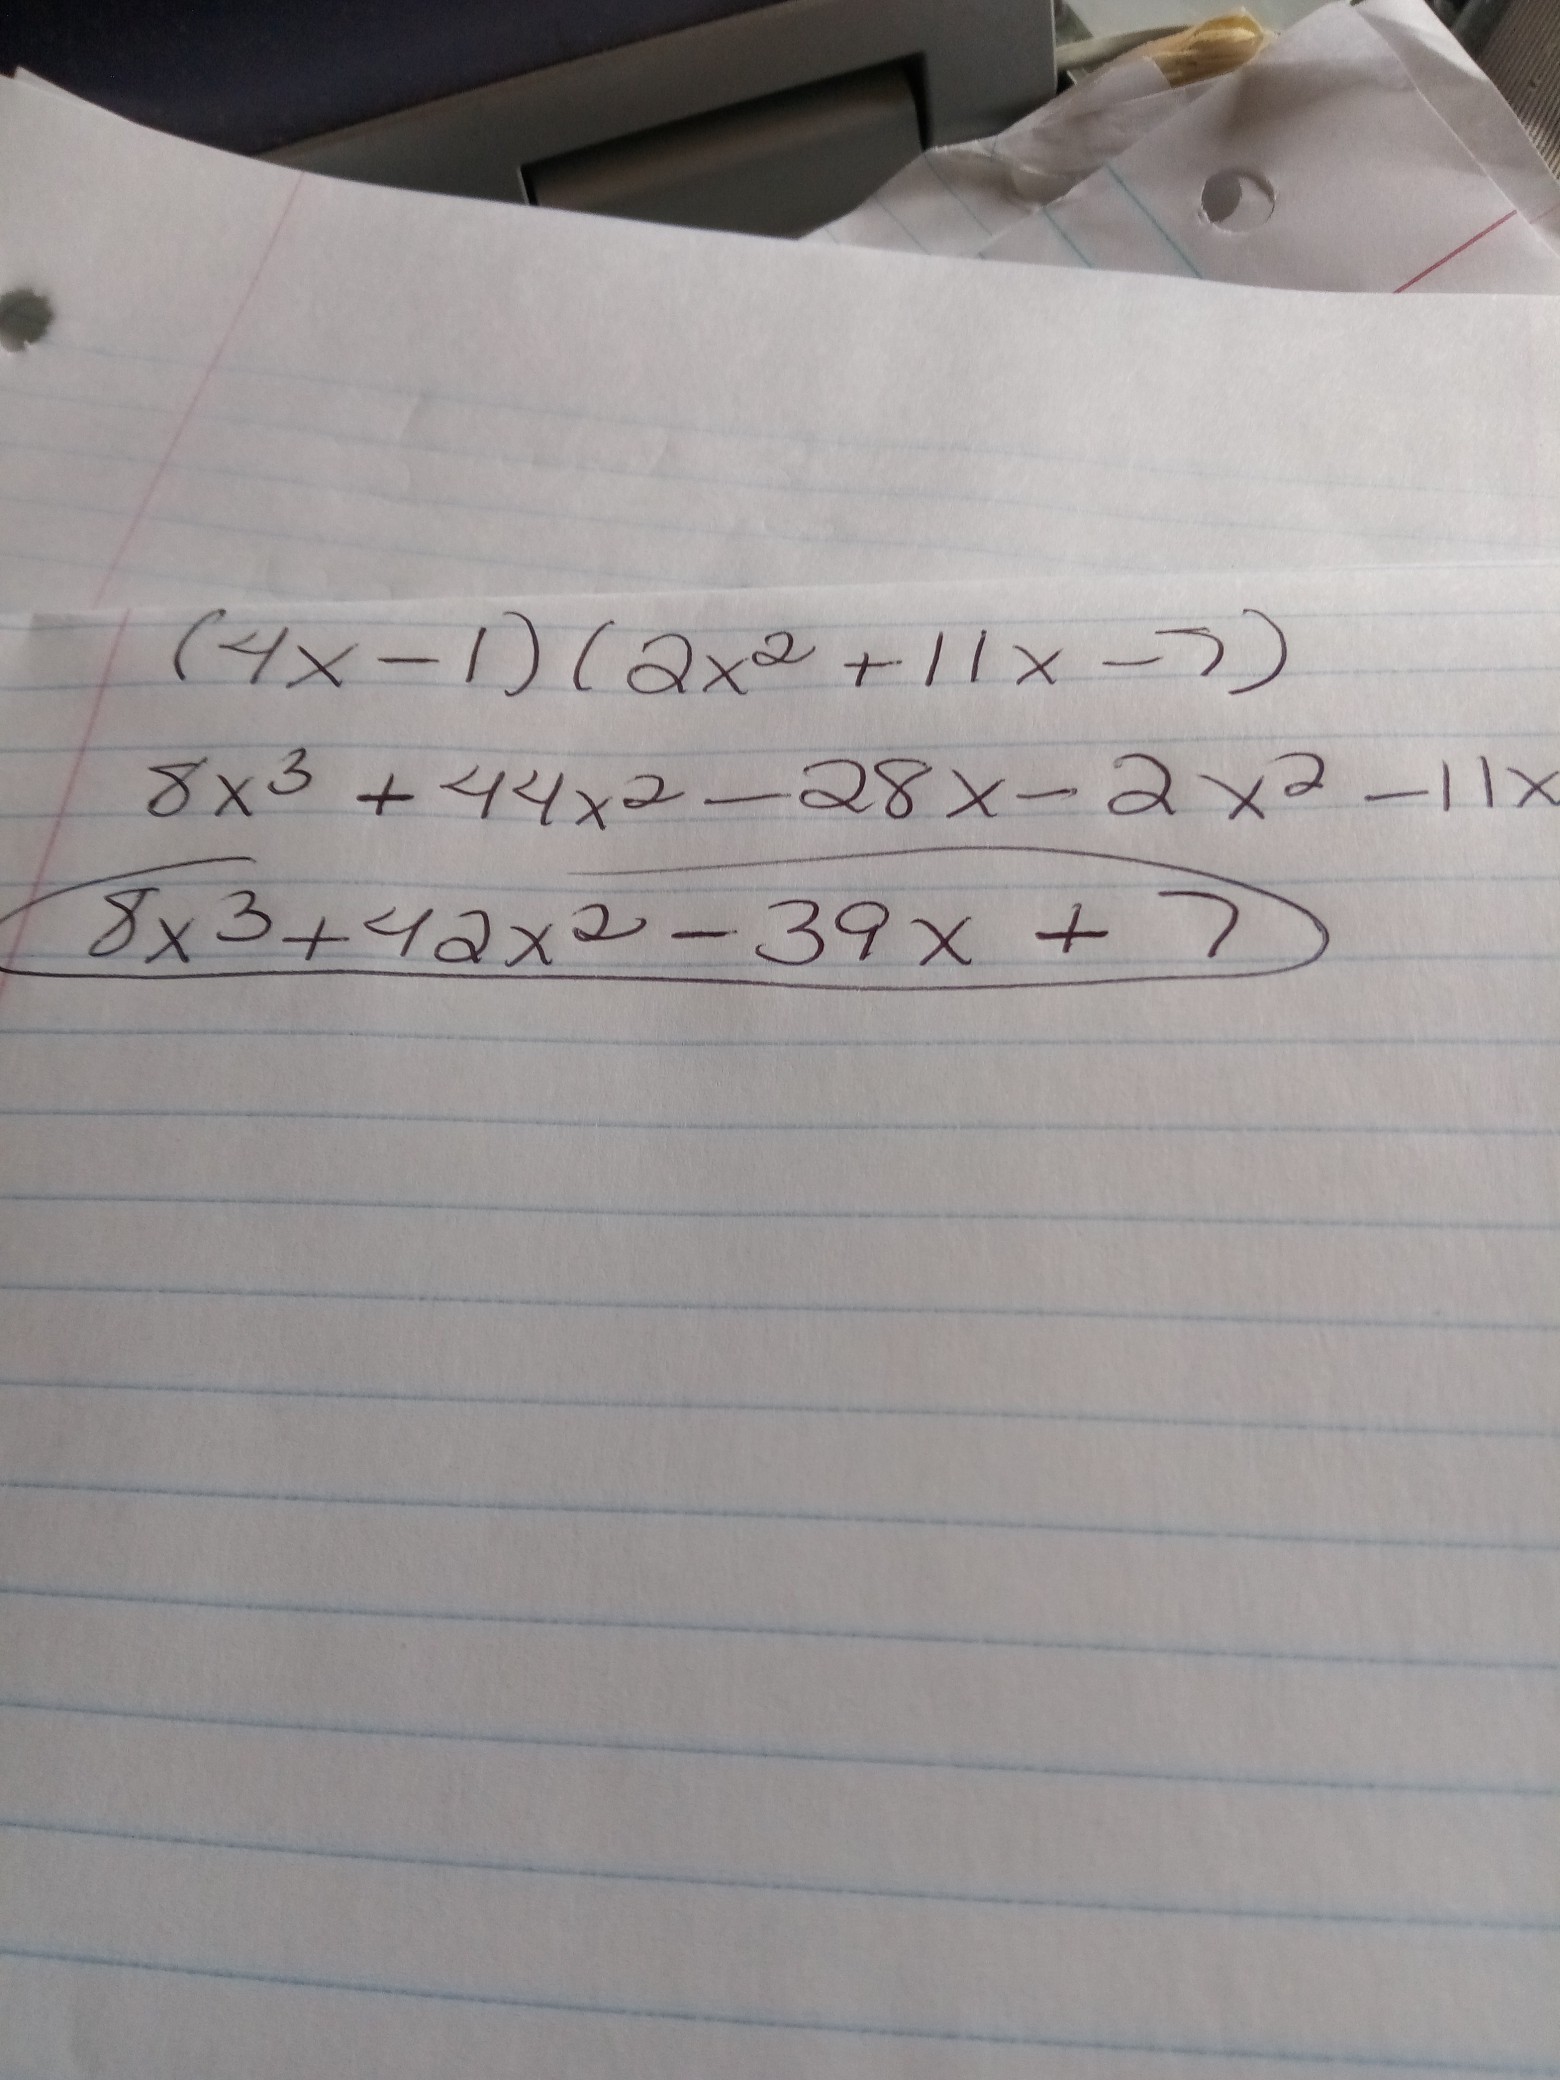 (4x-1)(2x²+11x-7)
8x³+44x²-28x-2x²-11x
8x³+42x²-39x+7